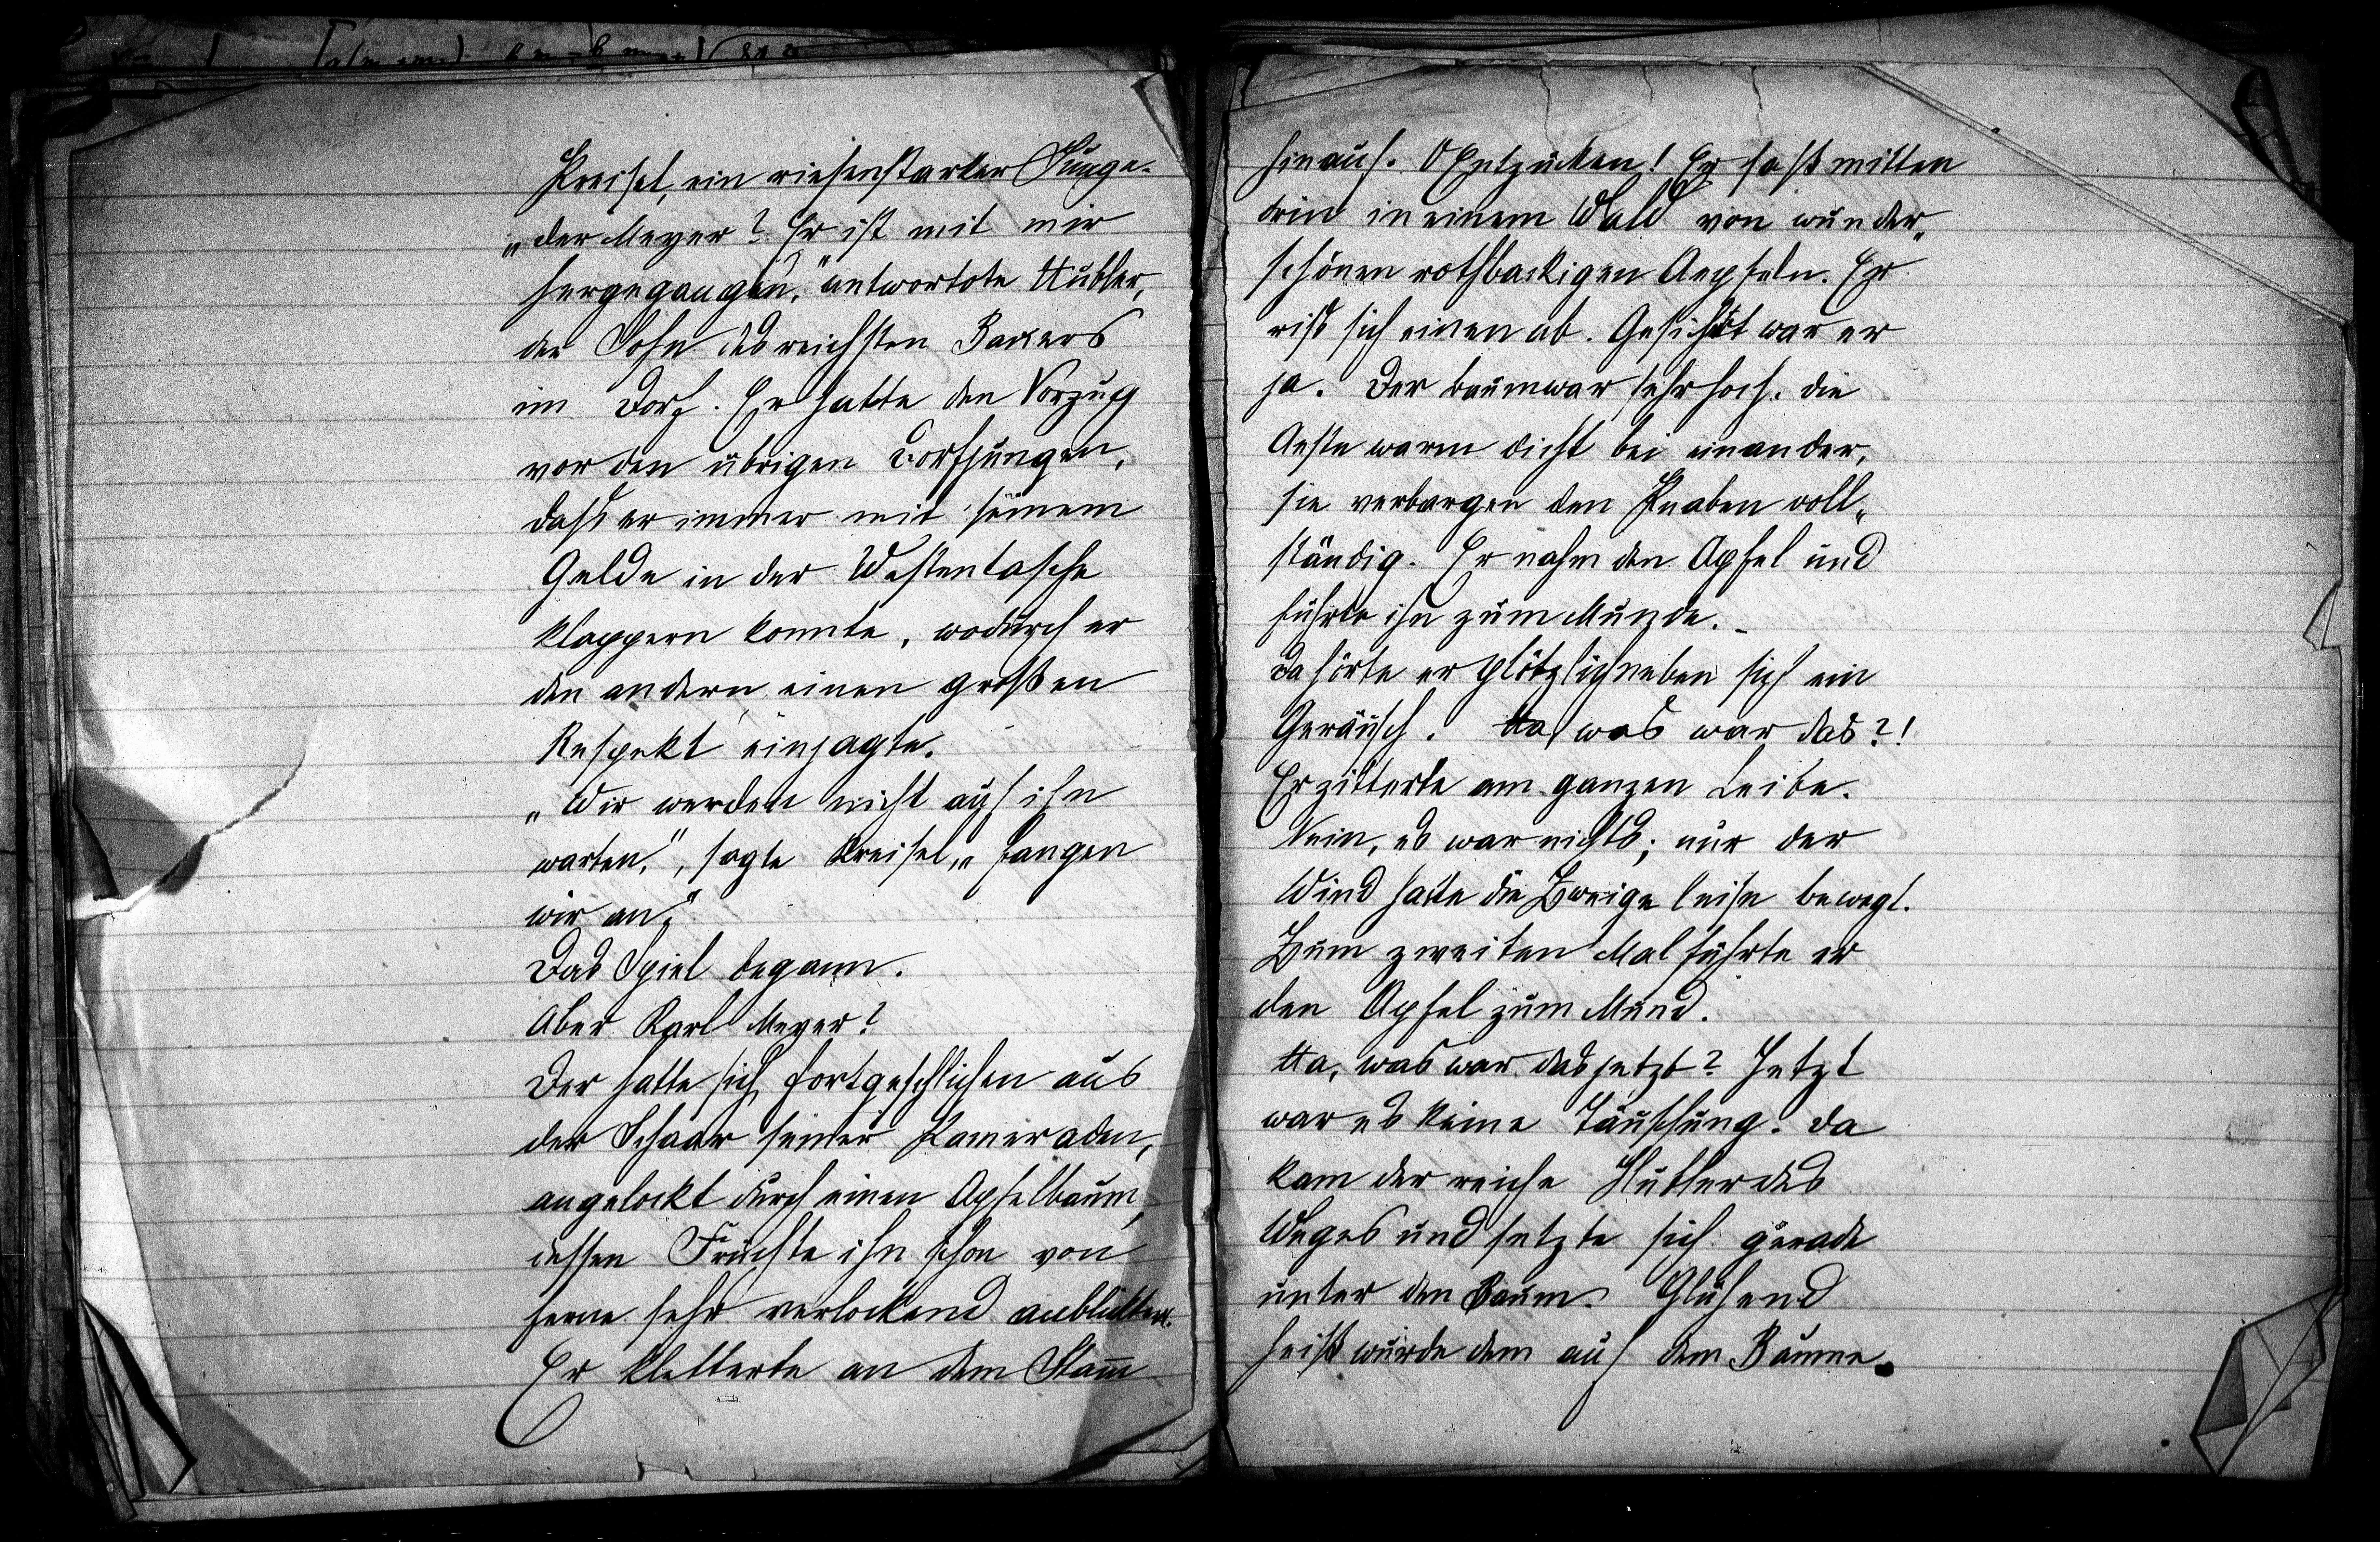 Kreisel, ein riesenstarker Junge.
„der Meyer? Er ist mit mir
hergegangen," antwortote Hubler,
der Sohn des reichsten Bauers
im Dorf. Er hatte den Vorzug
vor den übrigen Dorfjungen,
dass er immer mit seinem
Gelde in der Westentasche
klappern konnte, wodurch er
den andern einen großen
Respekt einjagte.
„Wir werden nicht auf ihn
warten,", sagte Kreisel, „fangen
wir an."
Das Spiel begann.
Aber Karl Meyer?
Der hatte sich fortgeschlichen aus
der Schaar seiner Kameraden,
angelockt durch einen Apfelbaum,
dessen Früchte ihn schon von
ferne sehr verlockend anblickten.
Er kletterte an dem Stam̅
hinauf. O Entzücken! Er saß mitten
drin in einem Wald von wunder„
schönen rothbackigen Aepfeln. Er
riß sich einen ab. Gesichert war er
ja. Der Baum war sehr hoch. die
Aeste waren dicht bei einander,
sie verbargen den Knaben voll„
ständig. Er nahm den Apfel und
führte ihn zum Munde. _
Da hörte er plötzlich neben sich ein
Geräusch. Ha, was war das?!
Er zitterte am ganzen Leibe.
Nein, es war nichts; nur der
Wind hatte die Zweige leise bewegt.
Zum zweiten Mal führte er
den Apfel zum Mund.
Ha, was war das jetzt? Jetzt
war es keine Täuschung. Da
kam der reiche Hubler des
Weges und setzte sich gerade
unter den Baum. Glühend
heiß wurde dem auf dem Baume.